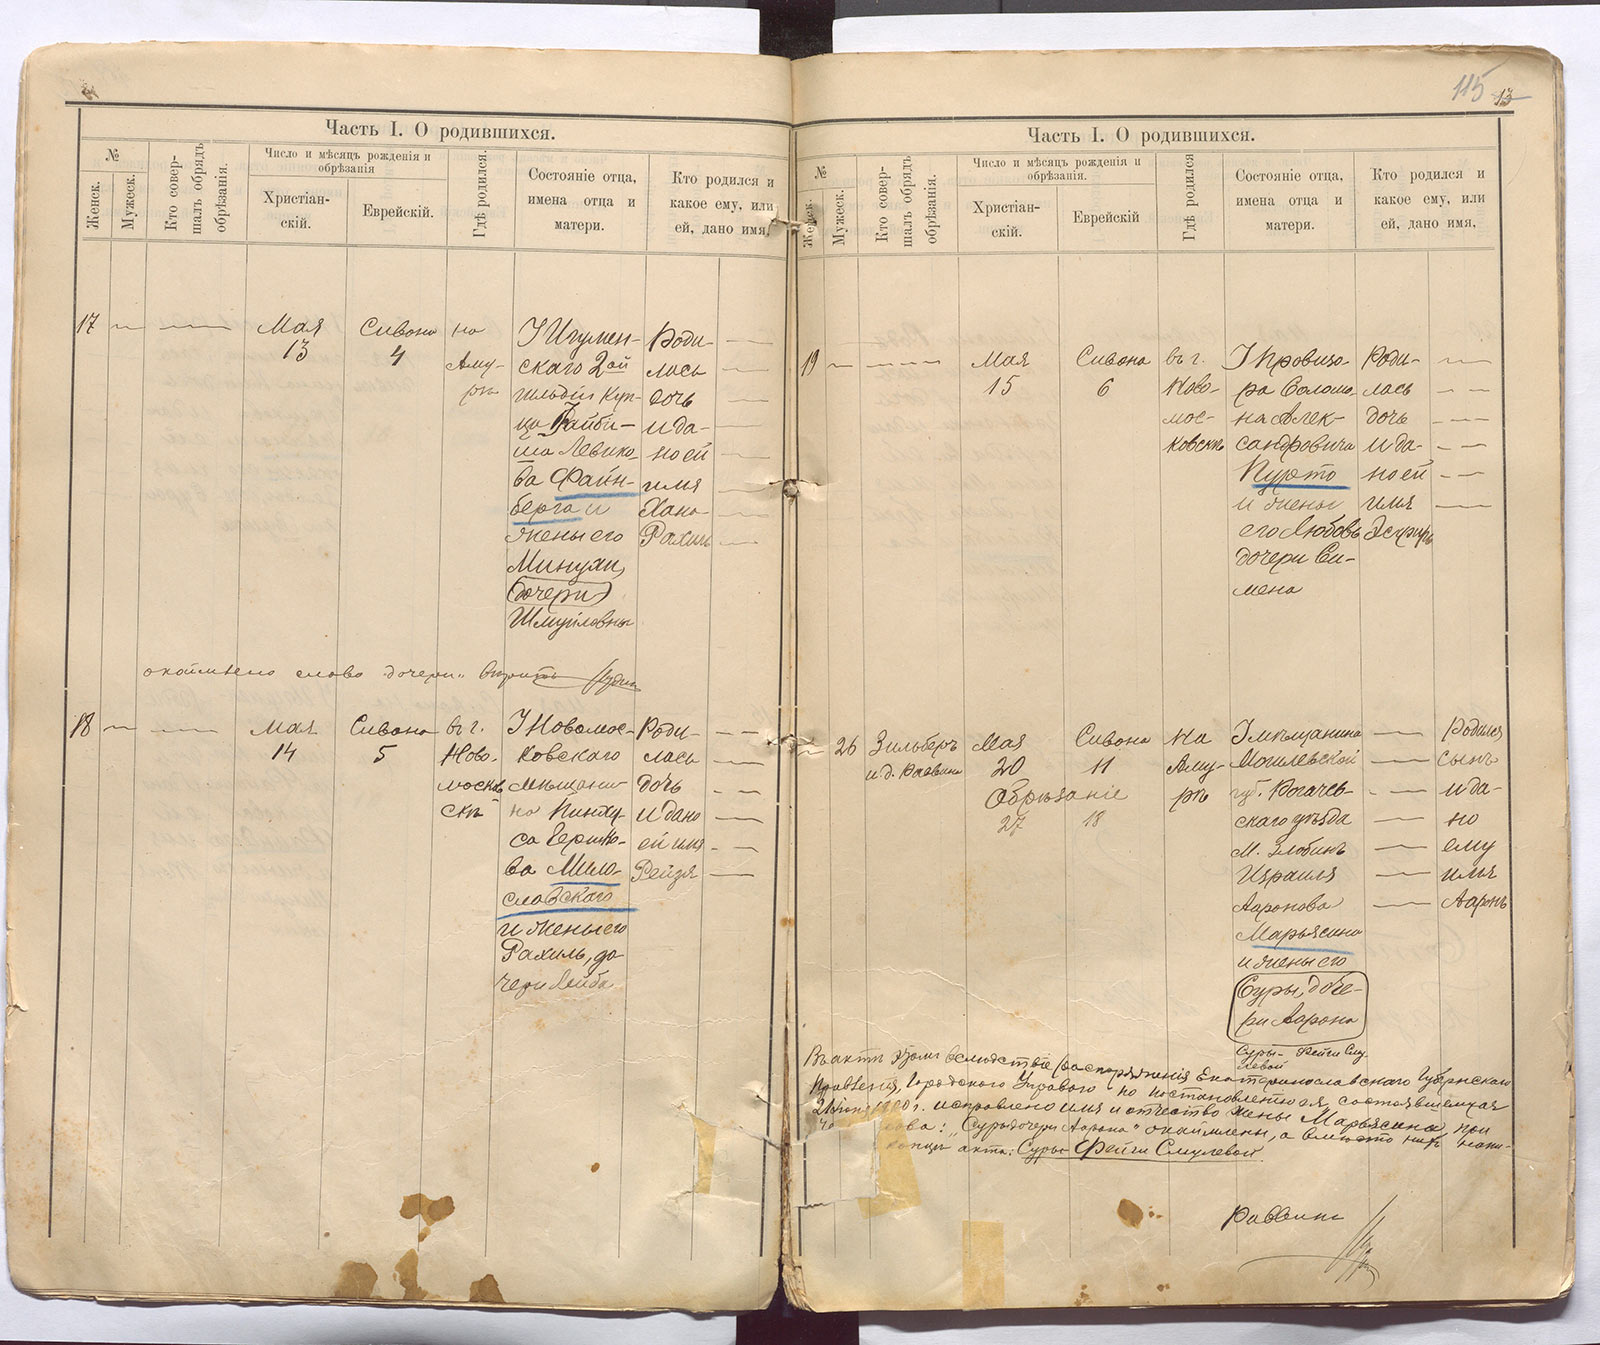 Часть I. О родившихся.
№
Женск.
Мужеск.
Кто совер-
шалъ обрядъ
обрѣзанія.
Число и мѣсяцъ рожденія и
обрѣзанія
Христіан-
скій.
Еврейскій.
Гдѣ родился.
Состояніе отца,
имена отца и
матери.
Кто родился и
какое ему, или
ей, дано имя.
17
Мая
13
Сивона
4
на
Аму-
рѣ
У Игумен-
скаго 2ой
гильдіи куп-
ца Файби-
ша Левико-
ва Файн-
берга и
жены его
Минухи,
(дочери)
Шмуйловны
Роди-
лась
дочь
и да-
но ей
имя
Хана-
Рахиль
окаймлено слово "дочери" вѣрить
18
Мая
14
Сивона
5
въ г.
Ново-
москов
скѣ
У Новомос-
ковскаго
мѣщани-
на Пинху-
са Берко-
ва Мило-
славскаго
и жены его
Рахиль, до
чери Лейба
Роди-
лась
дочь
и дано
ей имя
Рейзя
115
13
Часть I. О родившихся.
№
Женск.
Мужеск.
Кто совер-
шалъ обрядъ
обрѣзанія.
Число и мѣсяцъ рожденія и
обрѣзанія.
Христіан-
скій.
Еврейскій
Гдѣ родился
Состояніе отца,
имена отца и
матери.
Кто родился и
какое ему, или
ей, дано имя,
19
Мая
15
Сивона
6
въ г.
Ново-
мос-
ковскѣ
У Провизо-
ра Соломо-
на Алек-
сандровича
Пурто
и жены
его Любовь
дочери Си-
мена
Роди-
лась
дочь
и да-
но ей
имя
Эсфирь
26
Зильберъ
и д. Раввина
Мая
20
Сивона
11
Обрѣзаніе
27
18
На
Аму-
рѣ
У мѣщанина
Могилевской
губ. Рогачев-
скаго уѣзда
м. Злобинъ
Израиля
Ааронова
Марьясина
и жены его
Суры, доче-
ри Аарона
Суры-Фейги Сму
левой
Родился
сынъ
и да-
но
ему
имя
Ааронъ
Въ актѣ этомъ вслѣдствіе распоряженія Екатеринославскаго Губернскаго
Правленія, Городского Управою по постановленію ея, состоявшемуся
1900 г. исправлено имя и отчество жены Марьясина, при
слова: "Суры дочери Аарона" окаймлены, а вмѣсто нихъ напи-
концѣ акта: Суры Фейги Смулевой.
Раввинъ